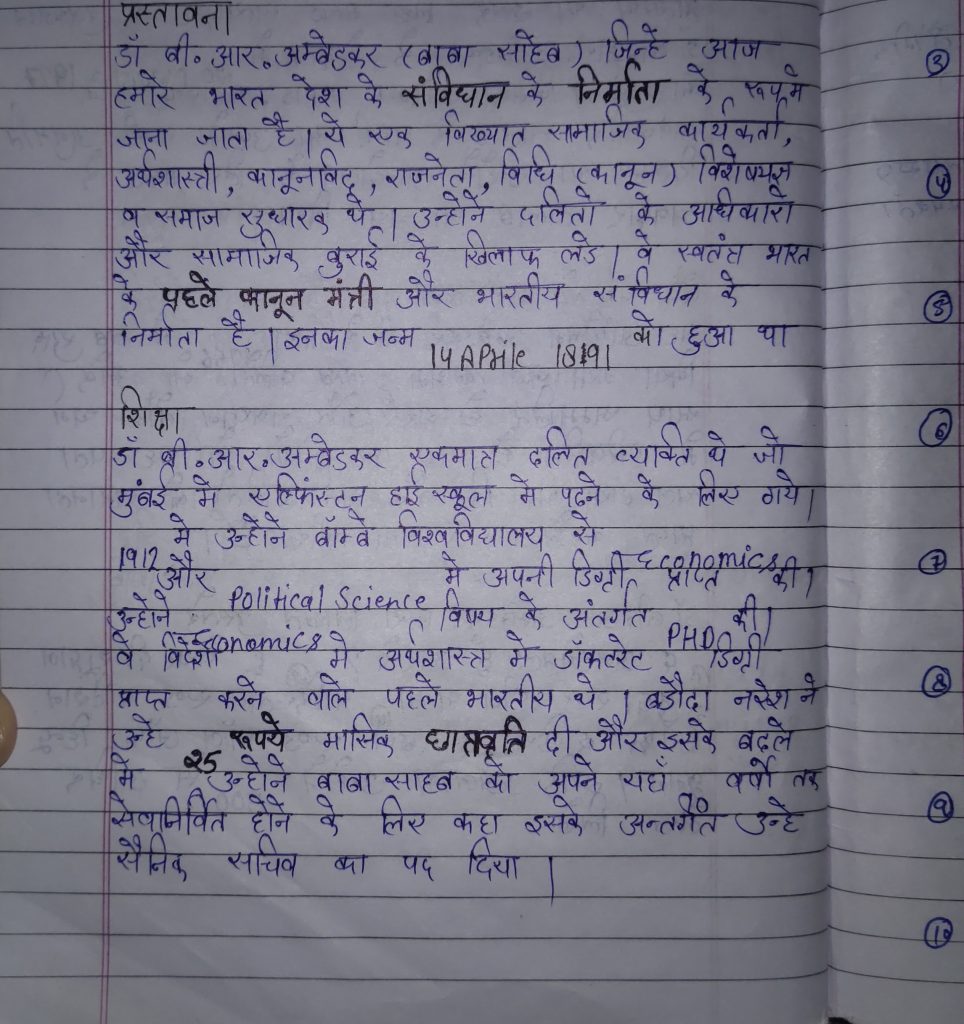 प्रस्तावना
डॉ बी.आर.अम्बेडकर (बाबा साहेब) जिन्हे आज
हमारे भारत देश के संविधान के निर्माता के रूप मे
जाना जाता है। ये एक विख्यात सामाजिक कार्यकर्ता,
अर्थशास्त्री, कानूनविद्, राजनेता, विधि (कानून) विशेषयज्ञ
व समाज सुधारक थे। उन्होने दलितो के अधिकारो
और सामाजिक बुराई के खिलाफ लडे। वे स्वतंत्र भारत
के पहले कानून मंत्री और भारतीय संविधान के
निर्माता है। इनका जन्म 14 APrile 1891 को हुआ था
शिक्षा
डॉ बी.आर.अम्बेडकर एकमात्र दलित व्यक्ति थे जो
मुंबई मे एल्फिंस्टन हाई स्कूल मे पढने के लिए गये।
1912 मे उन्होने बॉम्बे विश्वविद्यालय से Economics
और Political Science मे अपनी डिग्री प्राप्त की।
उन्होने Economics विषय के अंतर्गत PHD की।
वे विदेश मे अर्थशास्त्र मे डॉक्टरेट डिग्री
प्राप्त करने वाले पहले भारतीय थे। बडौदा नरेश ने
उन्हे 25 रूपये मासिक छात्रवृति दी और इसके बदले
मे उन्होने बाबा साहब को अपने यहाँ 10 वर्षो तक
सेवानिर्वित होने के लिए कहा इसके अन्तर्गत उन्हे
सैनिक सचिव का पद दिया।
3
4
5
6
7
8
9
10